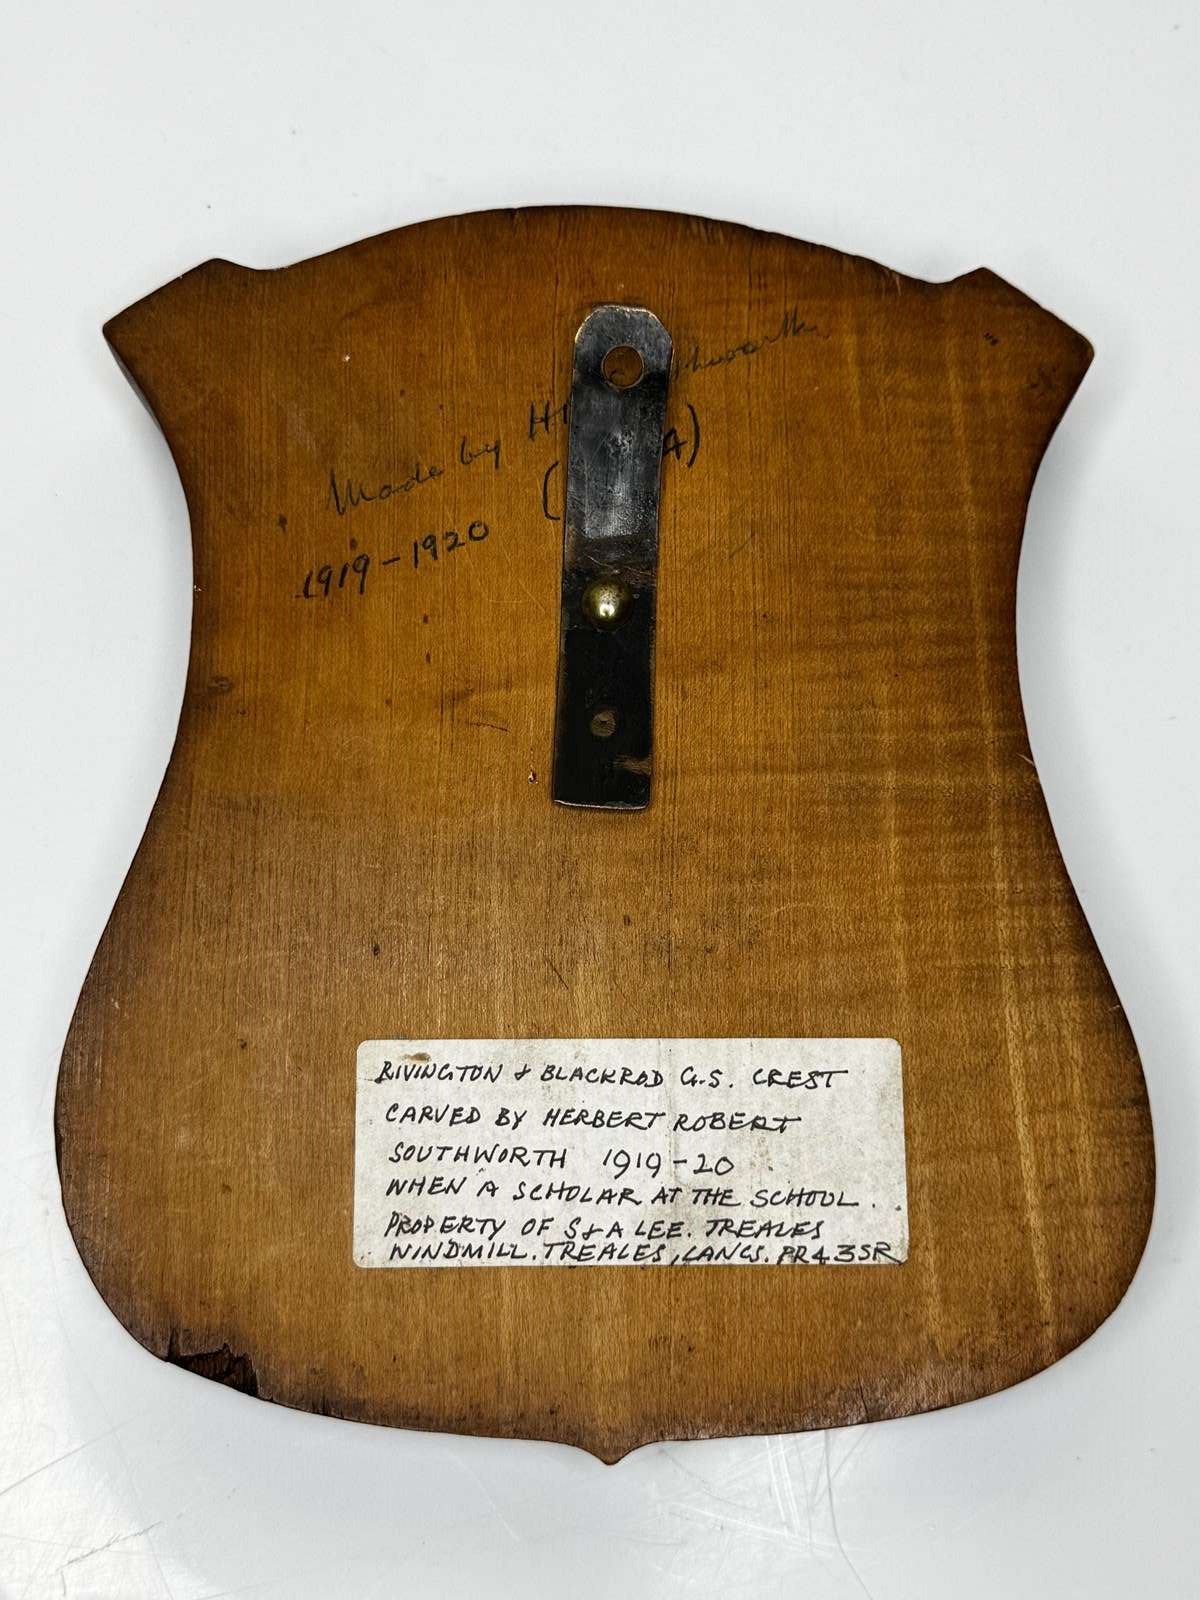 Made by H
4)
1919-1920
RIVINGTON & BLACKROD G.S. CREST
CARVED BY HERBERT ROBERT
SOUTHWORTH 1919-20
WHEN A SCHOLAR AT THE SCHOOL.
PROPERTY OF S & A LEE. TREALES
WINDMILL. TREALES, LANCS. PR4 3SR